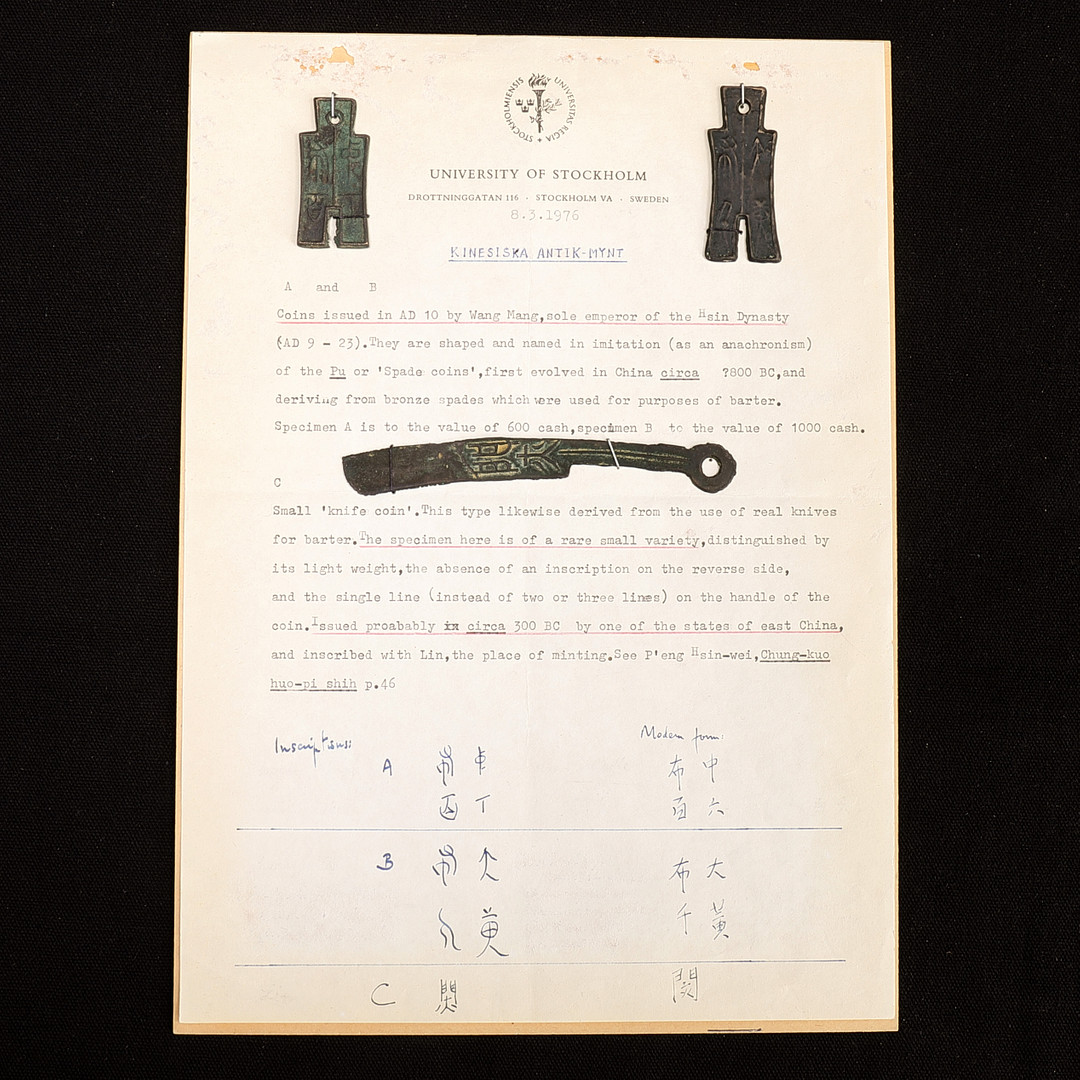 STOCKHOLMIENSIS UNIVERSITAS REGIA
UNIVERSITY OF STOCKHOLM
DROTTNINGGATAN 116 · STOCKHOLM VA · SWEDEN
8.3.1976
KINESISKA ANTIK-MYNT
A and B
Coins issued in AD 10 by Wang Mang,sole emperor of the Hsin Dynasty
(AD 9 - 23).They are shaped and named in imitation (as an anachronism)
of the Pu or 'Spade coins',first evolved in China circa ?800 BC,and
deriving from bronze spades which were used for purposes of barter.
Specimen A is to the value of 600 cash,specimen B to the value of 1000 cash.
C
Small 'knife coin'.This type likewise derived from the use of real knives
for barter.The specimen here is of a rare small variety,distinguished by
its light weight,the absence of an inscription on the reverse side,
and the single line (instead of two or three lines) on the handle of the
coin.Issued proabably ix circa 300 BC by one of the states of east China,
and inscribed with Lin,the place of minting.See P'eng Hsin-wei,Chung-kuo
huo-pi shih p.46
Inscriptions: Modern form:
A 布 中
百 六
B 布 大
千 黃
C 閔